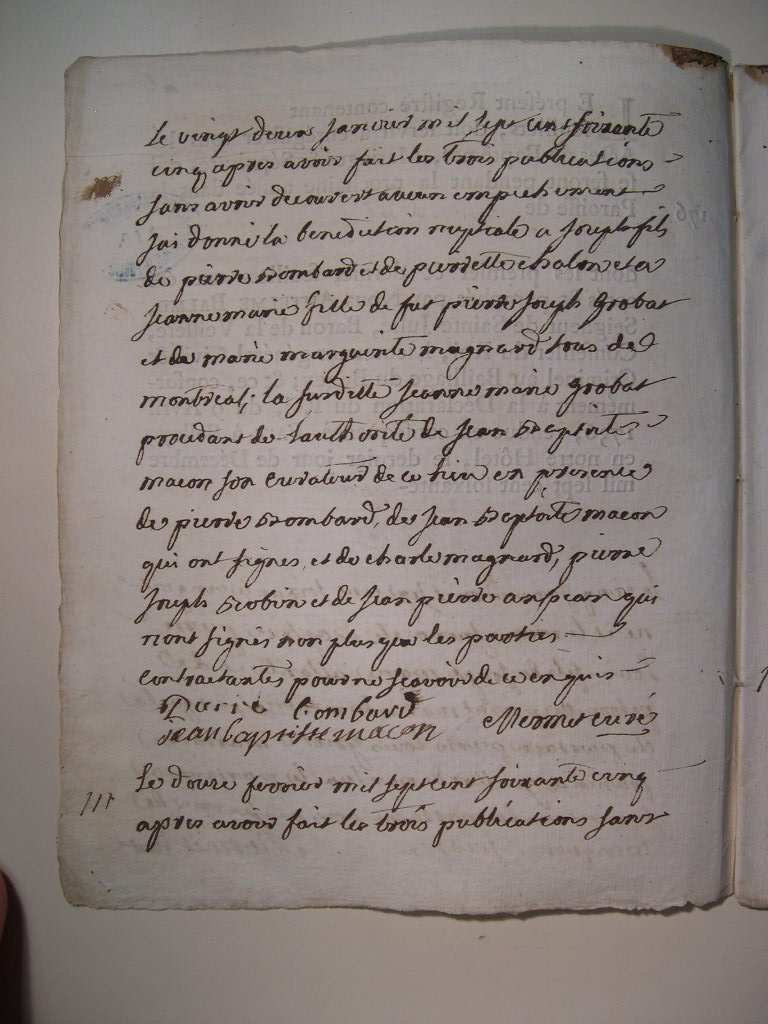 Le vingt deux Janvier mil sept cent soixante
cinq apres avoir fait les trois publications
sans avoir decouvert aucun empechement
Jai donné la benediction nuptiale a Joseph fils
de pierre Bombard et de pierrette chalon et a
Jeanne marie fille de fut pierre Joseph Grobat
et de marie marguerite magnard tous de
montreal; la surditte Jeanne marie Grobat
procedant de lauthorité de Jean Baptiste
macon son curateur de ce lieu en presence
de pierre Bombard, de Jean Baptiste macon
qui ont signes, et de charle magnard, pierre
Joseph Robin et de Jean pierre qui
nont signés non plus que les parties
contractantes pour ne scavoir de ce enquis
bombard
Jean baptiste macon curé
Le douze fevrier mil sept cent soixante cinq
apres avoir fait les trois publications sans